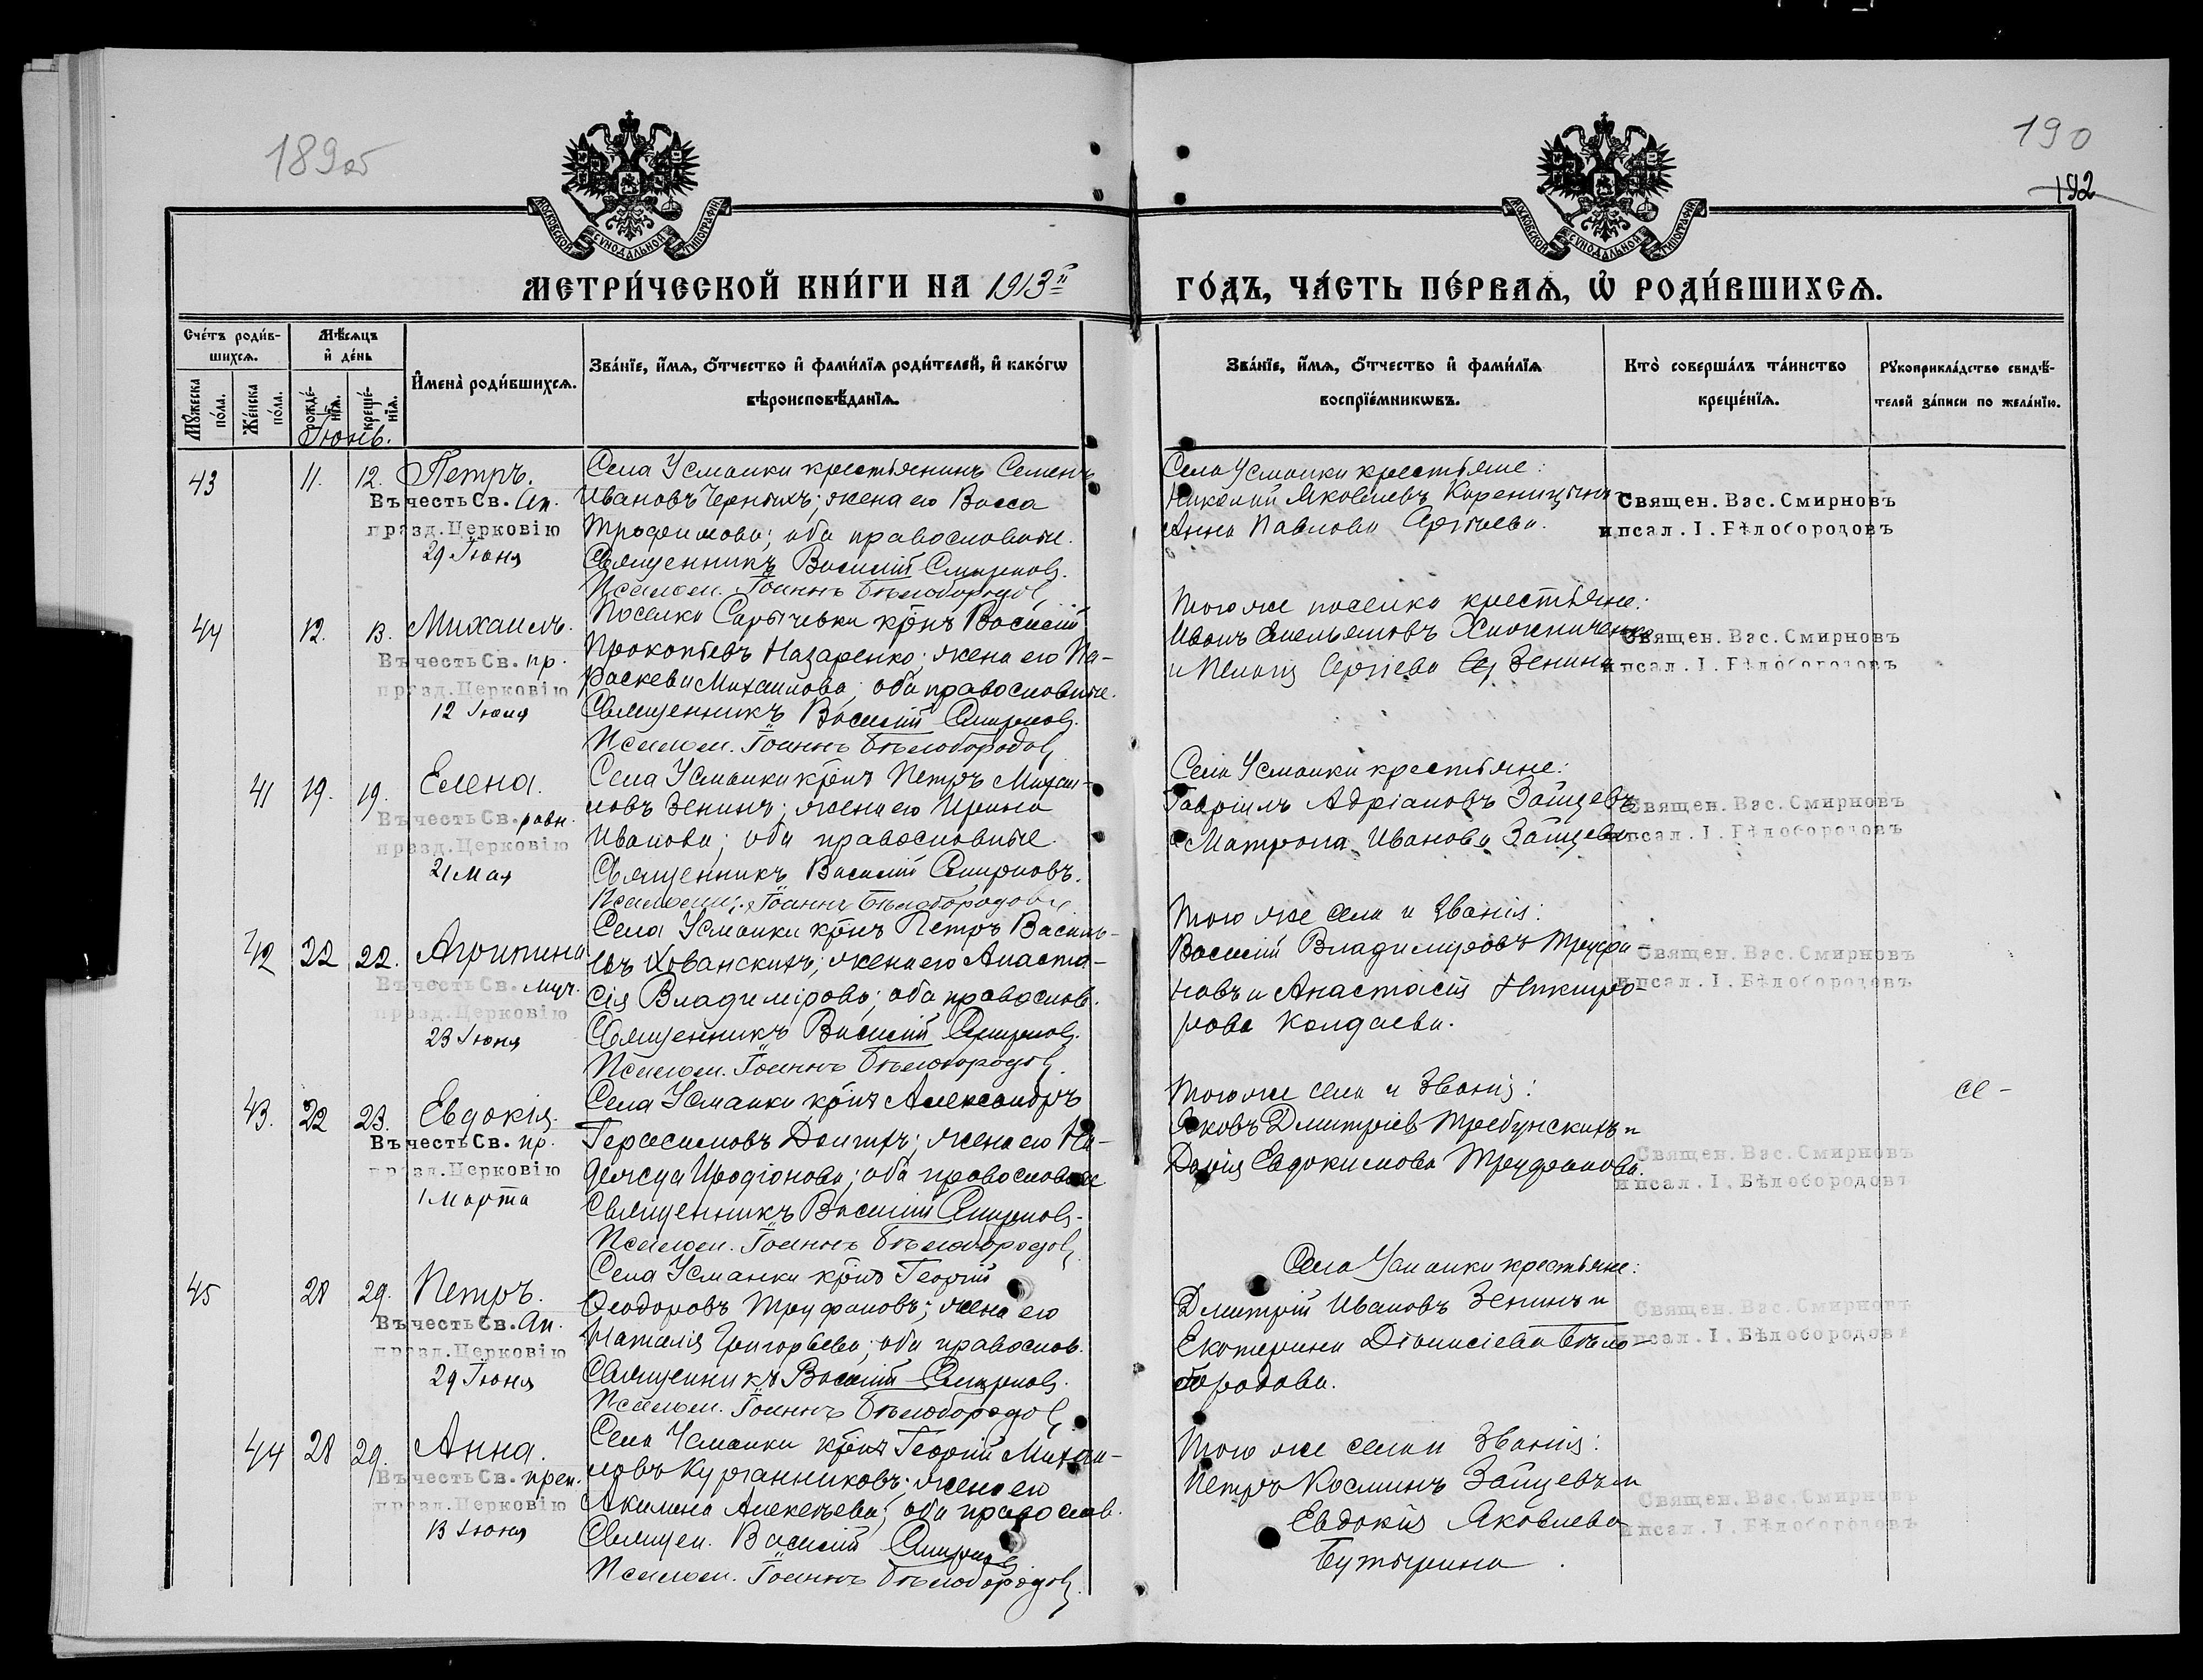 189об
190
192
МОСКОВСКОЙ СѴНОДАЛЬНОЙ ТИПОГРАФІИ
МОСКОВСКОЙ СѴНОДАЛЬНОЙ ТИПОГРАФІИ
МЕТРИ́ЧЕСКОЙ КНИ́ГИ НА 1913й
ГО́ДЪ, ЧА́СТЬ ПЕ́РВАѦ, Ѡ҆ РОДИ́ВШИХСѦ.
Сче́тъ роди́в-
шихсѧ.
Мѣ́сѧцъ
и҆ де́нь
И҆мена̀ роди́вшихсѧ.
Зва́нїе, и҆́мѧ, ѻ҆́тчество и҆ фами́лїѧ роди́телей, и҆ како́гѡ
вѣроисповѣ́данїѧ.
Мꙋ́жеска
по́ла.
Же́нска
по́ла.
рожде́-
нїѧ.
креще́-
нїѧ.
Іюнь.
Зва́нїе, и҆́мѧ, ѻ҆́тчество и҆ фами́лїѧ
воспрїе́мникѡвъ.
Кто̀ соверша́лъ та́инство
креще́нїѧ.
Рꙋкоприкла́дство свидѣ́-
телей за́писи по жела́нїю.
43 11. 12. Петръ.
Въ честь Св. Ап.
празд. Церковію
29 Іюня
Села Усманки крестьянинъ Семенъ
Ивановъ Черныхъ; жена его Васса
Трофимова; оба православные.
Священникъ Василій Смирновъ.
Псалом. Іоаннъ Бѣлобородовъ
Села Усманки крестьяне:
Николай Яковлевъ Кореницынъ
Анна Павлова Сергѣева.
Священ. Вас. Смирновъ
и псал. І. Бѣлобородовъ
44 12. 13. Михаилъ.
Въ честь Св. пр.
празд. Церковію
12 Іюля
Поселка Сарычевки кр҃нъ Василій
Прокопьевъ Назаренко; жена его Па-
раскева Михаилова; оба православные.
Священникъ Василій Смирновъ.
Псалом. Іоаннъ Бѣлобородовъ
Того же поселка крестьяне:
Иванъ Емельяновъ
и Пелагія Сергіева Зенина
Священ. Вас. Смирновъ
и псал. І. Бѣлобородовъ
41 19. 19. Елена.
Въ честь Св. равн.
празд. Церковію
21 Мая
Села Усманки кр҃нъ Петръ Михаи-
ловъ Зенинъ; жена его Ирина
Иванова; оба православные
Священникъ Василій Смирновъ.
Псаломщ. Іоаннъ Бѣлобородовъ
Села Усманки крестьяне:
Гавріилъ Адріановъ Зайцевъ
и Матрона Иванова Зайцева
Священ. Вас. Смирновъ
и псал. І. Бѣлобородовъ
42 22 22. Агрипина
Въ честь Св. муч.
празд. Церковію
23 Іюня
Села Усманки кр҃нъ Петръ Василь-
евъ Хованскихъ; жена его Анаста-
сія Владимірова; оба православ.
Священникъ Василій Смирновъ.
Псалом. Іоаннъ Бѣлобородовъ.
Того же села и званія:
Василій Владиміровъ Труфа-
новъ и Анастасія Никифо-
рова Колдаева.
Священ. Вас. Смирновъ
и псал. І. Бѣлобородовъ
43. 22 23. Евдокія.
Въ честь Св. пр.
празд. Церковію
1 Марта
Села Усманки кр҃нъ Александръ
Герасимовъ; жена его На-
дежда Иродіонова; оба православные
Священникъ Василій Смирновъ.
Псалом. Іоаннъ Бѣлобородовъ
Того же села и званія:
Яковъ Дмитріевъ Требунскихъ и
Дарія Евдокимова Труфанова.
Священ. Вас. Смирновъ
и псал. І. Бѣлобородовъ
45 28 29. Петръ.
Въ честь Св. Ап.
празд. Церковію
29 Іюня
Села Усманки кр҃нъ Георгій
Ѳеодоровъ Труфановъ; жена его
Наталія Григорьева; оба православ.
Священникъ Василій Смирновъ.
Псалом. Іоаннъ Бѣлобородовъ
Села Усманки крестьяне:
Дмитрій Ивановъ Зенинъ и
Екатерина Діонисіева Бѣло-
бородова.
Священ. Вас. Смирновъ
и псал. І. Бѣлобородовъ
44 28 29. Анна.
Въ честь Св. преп.
празд. Церковію
13 Іюня
Села Усманки кр҃нъ Георгій Михаи-
ловъ Курганниковъ; жена его
Акилина Алексѣева; оба православ.
Священ. Василій Смирновъ
Псалом. Іоаннъ Бѣлобородовъ.
Того же села и званія:
Петръ Косминъ Зайцевъ и
Евдокія Яковлева
Бутырина.
Священ. Вас. Смирновъ
и псал. І. Бѣлобородовъ